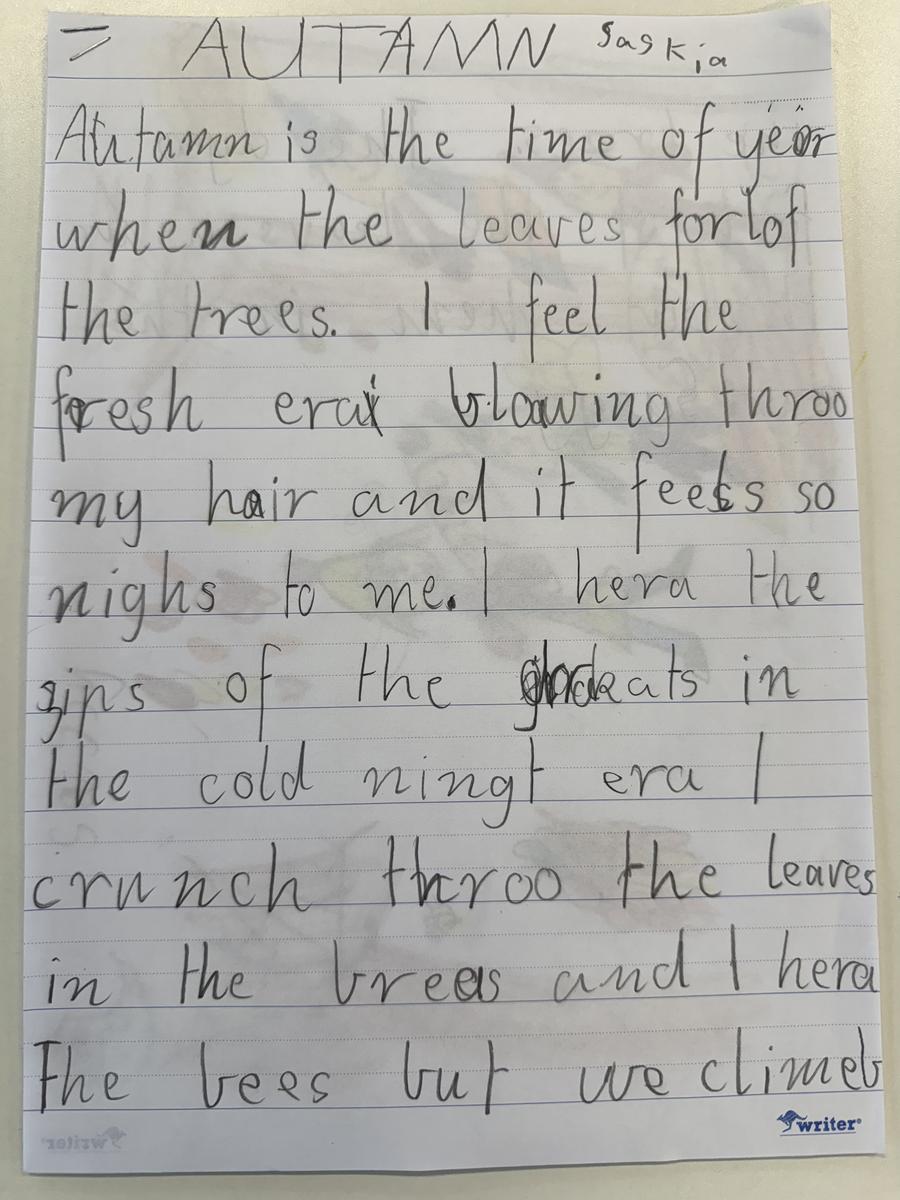 AUTAMN Saskia
Autamn is the time of year
when the leaves forl of
the trees. I feel the
fresh era blowing throo
my hair and it feels so
nighs to me. I hera the
zips of the in
the cold ningt era I
crunch throo the leaves
in the breas and I hera
The bees but we climeb
writer